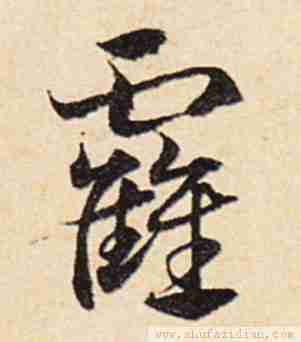 靃
www.shufazidian.com